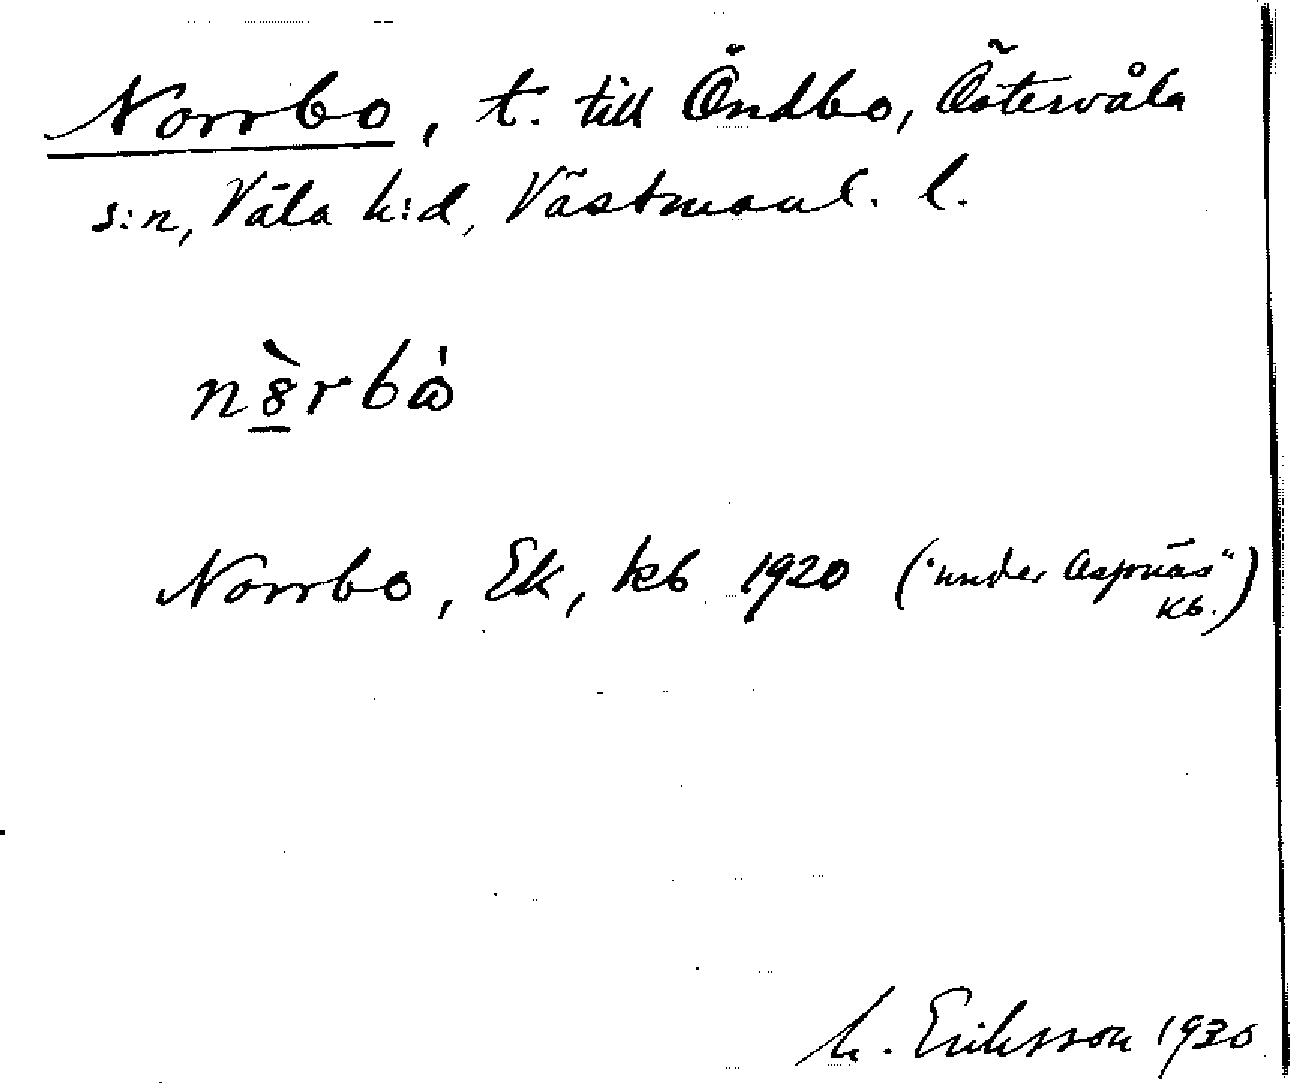 Norrbo, t. till Öndbo, Östervåla
s:n, Våla h:d, Västmanl. l.
nò̱rbὼ
Norrbo, Ek, kb 1920 ("under Aspnäs"
kb.)
M. Eriksson 1930